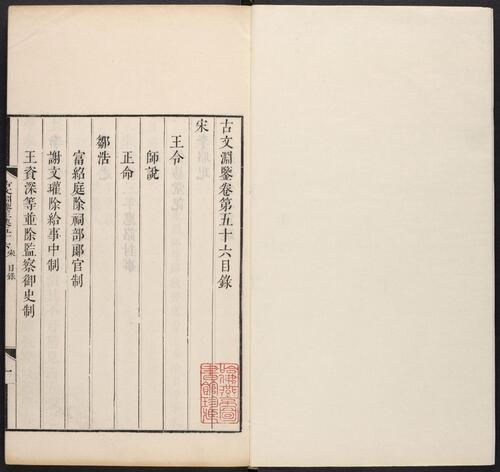 古文淵鑒卷第五十六目錄
宋
王令
師說
正命
鄒浩
富紹庭除祠部郎官制
謝文瓘除給事中制
王資深等並除監察御史制
目錄
一